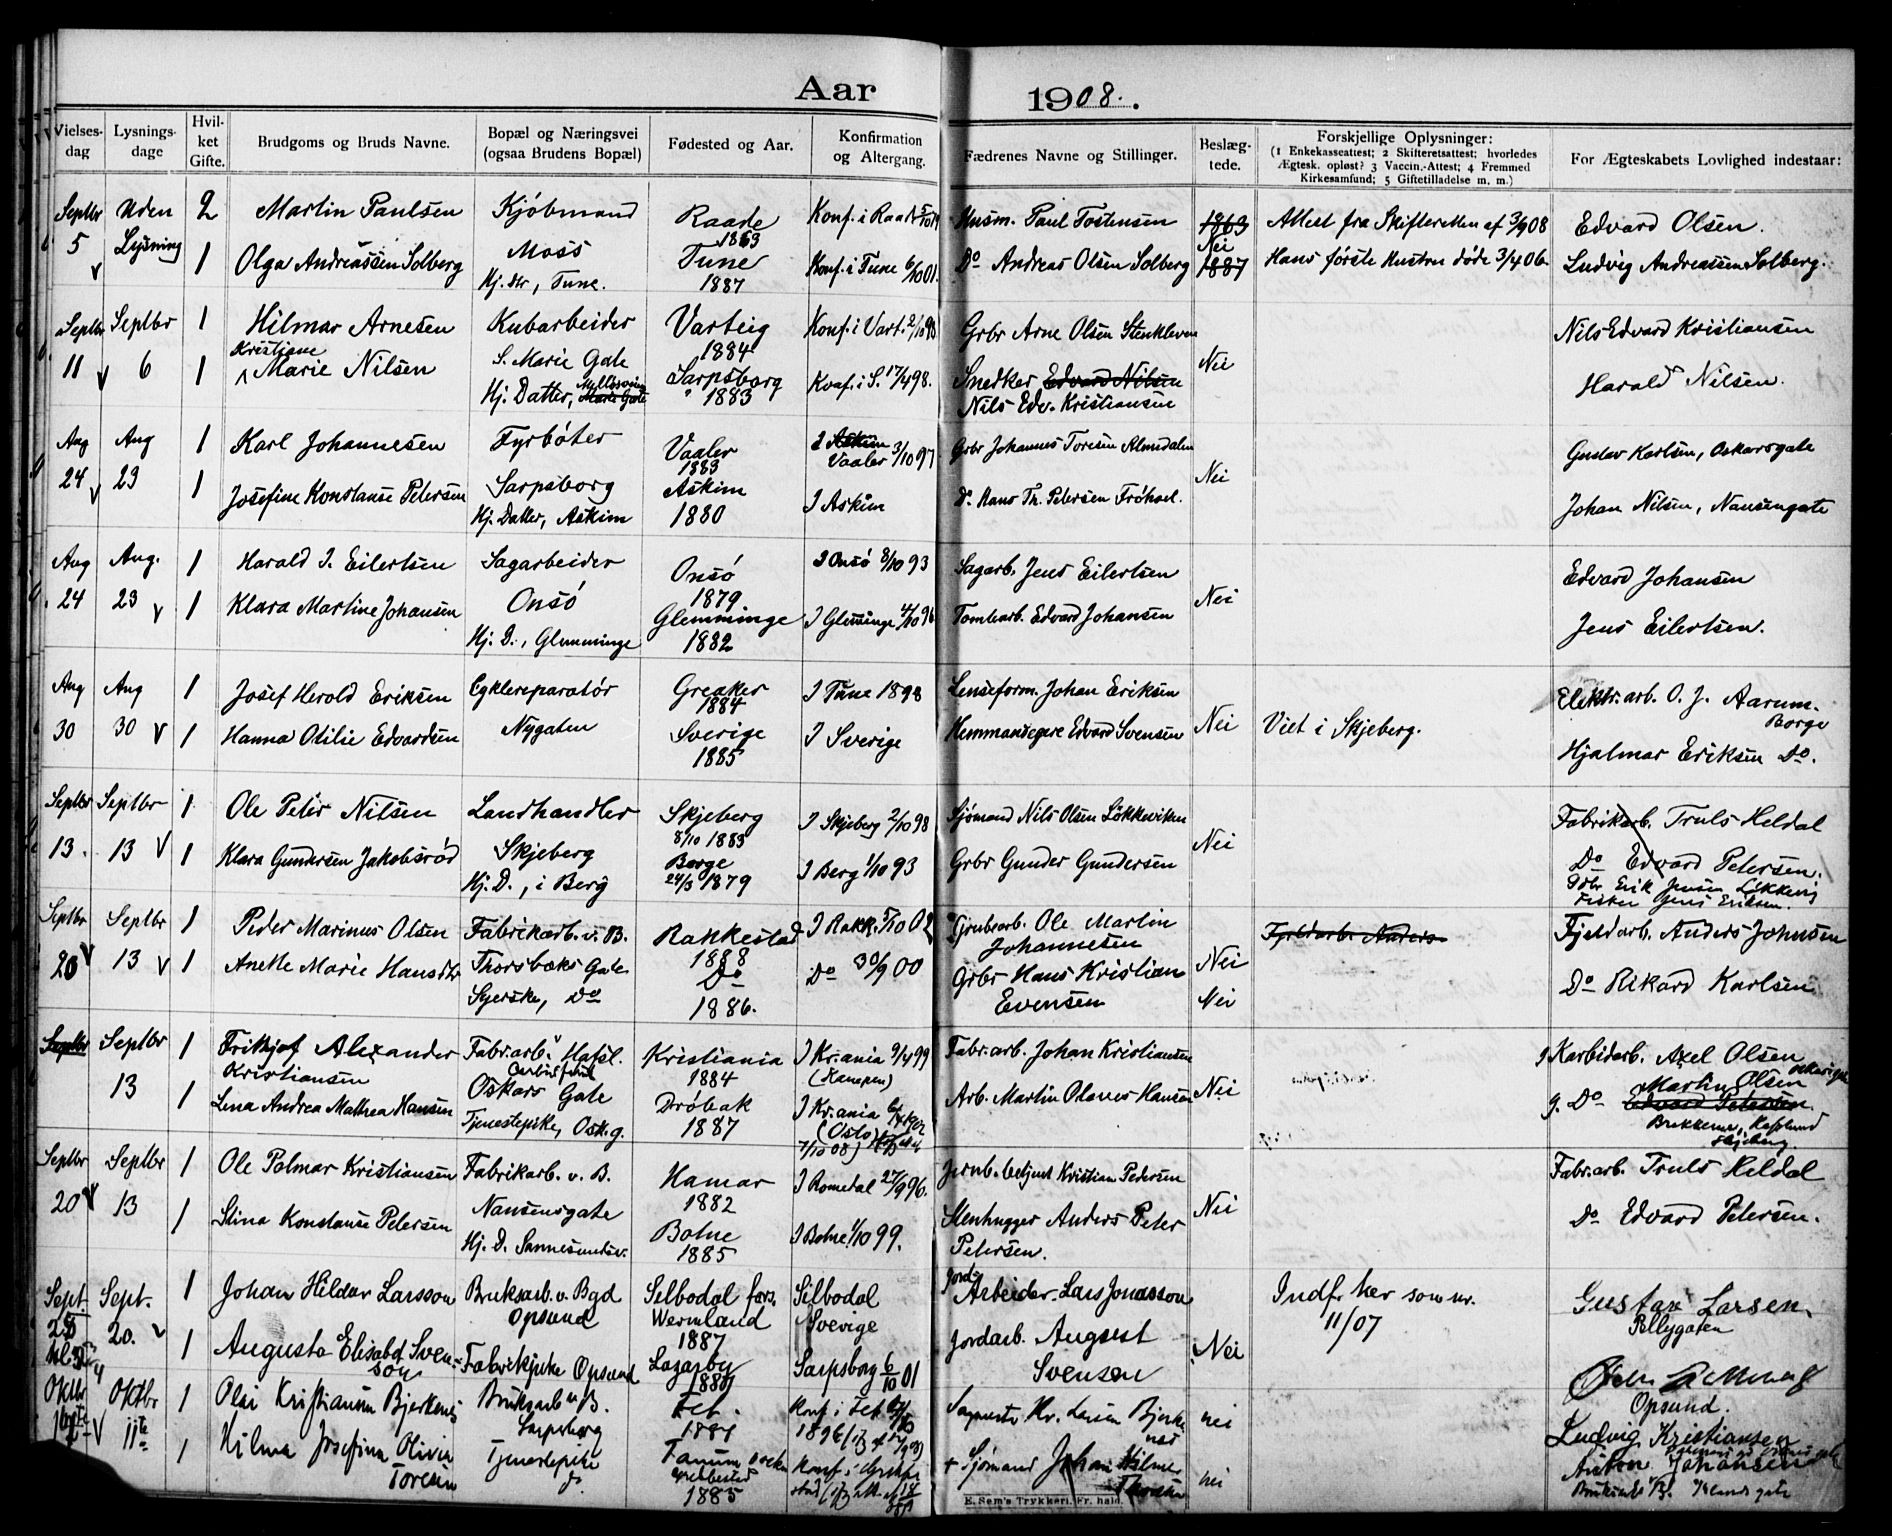 Aar 1908.
Vielses-dag
Lysnings-dage
Hvil-ket Gifte.
Brudgoms og Bruds Navne.
Bopæl og Næringsvei (ogsaa Brudens Bopæl)
Fødested og Aar.
Konfirmation og Altergang.
Fædrenes Navne og Stillinger.
Beslæg-tede.
Forskjellige Oplysninger:
(1 Enkekasseattest; 2 Skifteretsattest; hvorledes
Ægtesk. opløst? 3 Vaccin.-Attest; 4 Fremmed
Kirkesamfund; 5 Giftetilladelse m. m.)
For Ægteskabets Lovlighed indestaar:
Septbr Uden 2 Martin Paulsen Kjöbmand Raade 1863 Konf. i Raade Husm. Paul Tostensen 1863 Attest fra Skifteretten af 3/9 08 Edvard Olsen.
5 Lysning 1 Olga Andreassen Solberg Moss Hj. dtr, Tune. Tune 1887 Konf. i Tune 6/10 01. Do Andreas Olsen Solberg Nei 1887 Hans første Hustru døde 3/4 06. Ludvig Andreassen Solberg.
Septbr Septbr 1 Hilmar Arnesen Kubarbeider Varteig 1884 Konf. i Vart. 2/10 98 Grbr Arne Olsen Stenkleven Nils Edvard Kristiansen
11 6 1 Kristiane Marie Nilsen S. Marie Gate Hj. Datter, Marie Gate Sarpsborg 1883 Konf. i S. 17/4 98. Snedker Edvard Nilsen Nils Edv. Kristiansen Nei Harald Nilsen.
Aug Aug 1 Karl Johannesen Fyrböter Vaaler 1883 I Askim Vaaler 3/10 97 Grbr Johannes Toresen Almedalen Gustav Karlsen, Oskarsgate
24 23 1 Josefine Konstanse Petersen Sarpsborg Hj. Datter, Askim Askim 1880 I Askim Do Hans Th. Petersen Fröhoel. Nei Johan Nilsen, Nansengate
Aug Aug. 1 Harald I. Eilertsen Sagarbeider Onsö 1879 I Onsö 8/10 93 Sagarb. Jens Eilertsen Edvard Johansen
24 23 1 Klara Martine Johansen Onsö Hj. D., Glemminge Glemminge 1882 I Glemminge 4/10 96 Tomtearb. Edvard Johansen Nei Jens Eilertsen.
Aug Aug 1 Josef Herold Eriksen Cyklereparatör Greaker 1884 I Tune 1898 Lenseform. Johan Eriksen Elektr. arb. O. J. Aarum. Borge
30 30 1 Hanna Otilie Edvardsen Nygaten Sverige 1885 I Sverige Hemmansegere Edvard Svensen Nei Viet i Skjeberg. Hjalmar Eriksen Do.
Septbr Septbr 1 Ole Peter Nilsen Landhandler Skjeberg 8/10 1883 I Skjeberg 2/10 98 Sjömand Nils Olsen Lökkeviken Fabrikarb. Truls Heldal
13. 13 1 Klara Gundersen Jakobsröd Skjeberg Hj. D., i Berg Borge 24/3 1879 I Berg 1/10 93 Grbr Gunder Gundersen Nei Do Edvard Petersen.
Gdbr Erik Jensen Lökkevig
Fisker Jens Eriksen.
Septbr Septbr 1 Peder Marinus Olsen Fabrikarb. v. B. Rakkestad 1888 I Rakk. 5/10 02 Grubearb. Ole Martin Johannesen Nei Fjeldarb. Anders Fjeldarb. Anders Johnsen
20 13 1 Anette Marie Hansdtr Thorsbæks Gate Syerske, Do Do 1886. Do 30/9 00 Grbr Hans Kristian Evensen Nei Do Rikard Karlsen
Septbr Septbr 1 Frithjof Alexander Kristiansen Fabr. arb. Hafsl. Carbidfabrik Kristiania 1884 I Kr.ania 9/4 99 (Kampen) Fabr. arb. Johan Kristiansen Karbidarb. Axel Olsen
13 1 Lina Andrea Mathea Hansen Oskars Gate Tjenestepike, Osk. g. Dröbak 1887 I Kr.ania (Oslo) 7/10 08) Arb. Martin Olaves Hansen Nei Do Martin Olsen Edvard Petersen. Hafslund Skjeberg.
Septbr Septbr 1 Ole Palmar Kristiansen Fabrikarb. v. B. Hamar 1882 I Romedal 27/9 96. Jernb. betjent Kristian Pedersen Fabr. arb. Truls Heldal
20 13 1 Stina Konstanse Petersen Nansensgate Hj. D. Sannesundsv. Botne 1885 I Botne 1/10 99. Stenhugger Anders Peter Petersen. Nei Do Edvard Petersen.
Sept. Sept. 1 Johan Hildar Larsson Bruksarb. v. Bgd Opsund Silbodal fors. Wermland 1887 Silbodal Sverige Jord-Arbeider Lars Jonasson Indf. her som nr. 11/07 Gustav Larsen, Pellygaten
20. 1 Augusta Elisabet Svenson Fabrikpike Opsund Lazarby Sarpsborg 6/10 01 Jordarb. August Svensen Nei Opsund.
Oktbr Oktbr 1 Olai Kristiansen Bruksarb v B. Sarpsborg Fet. Konf. i Fet nei Ludvig Kristiansen
11te 1 Hilma Josefina Olivia Toresen Tjenestepike Tanum 1885 Konf. i + Sjömand Johan Hilmer nei Anton Johansen
E. Sem's Trykkeri, Fr. hald.